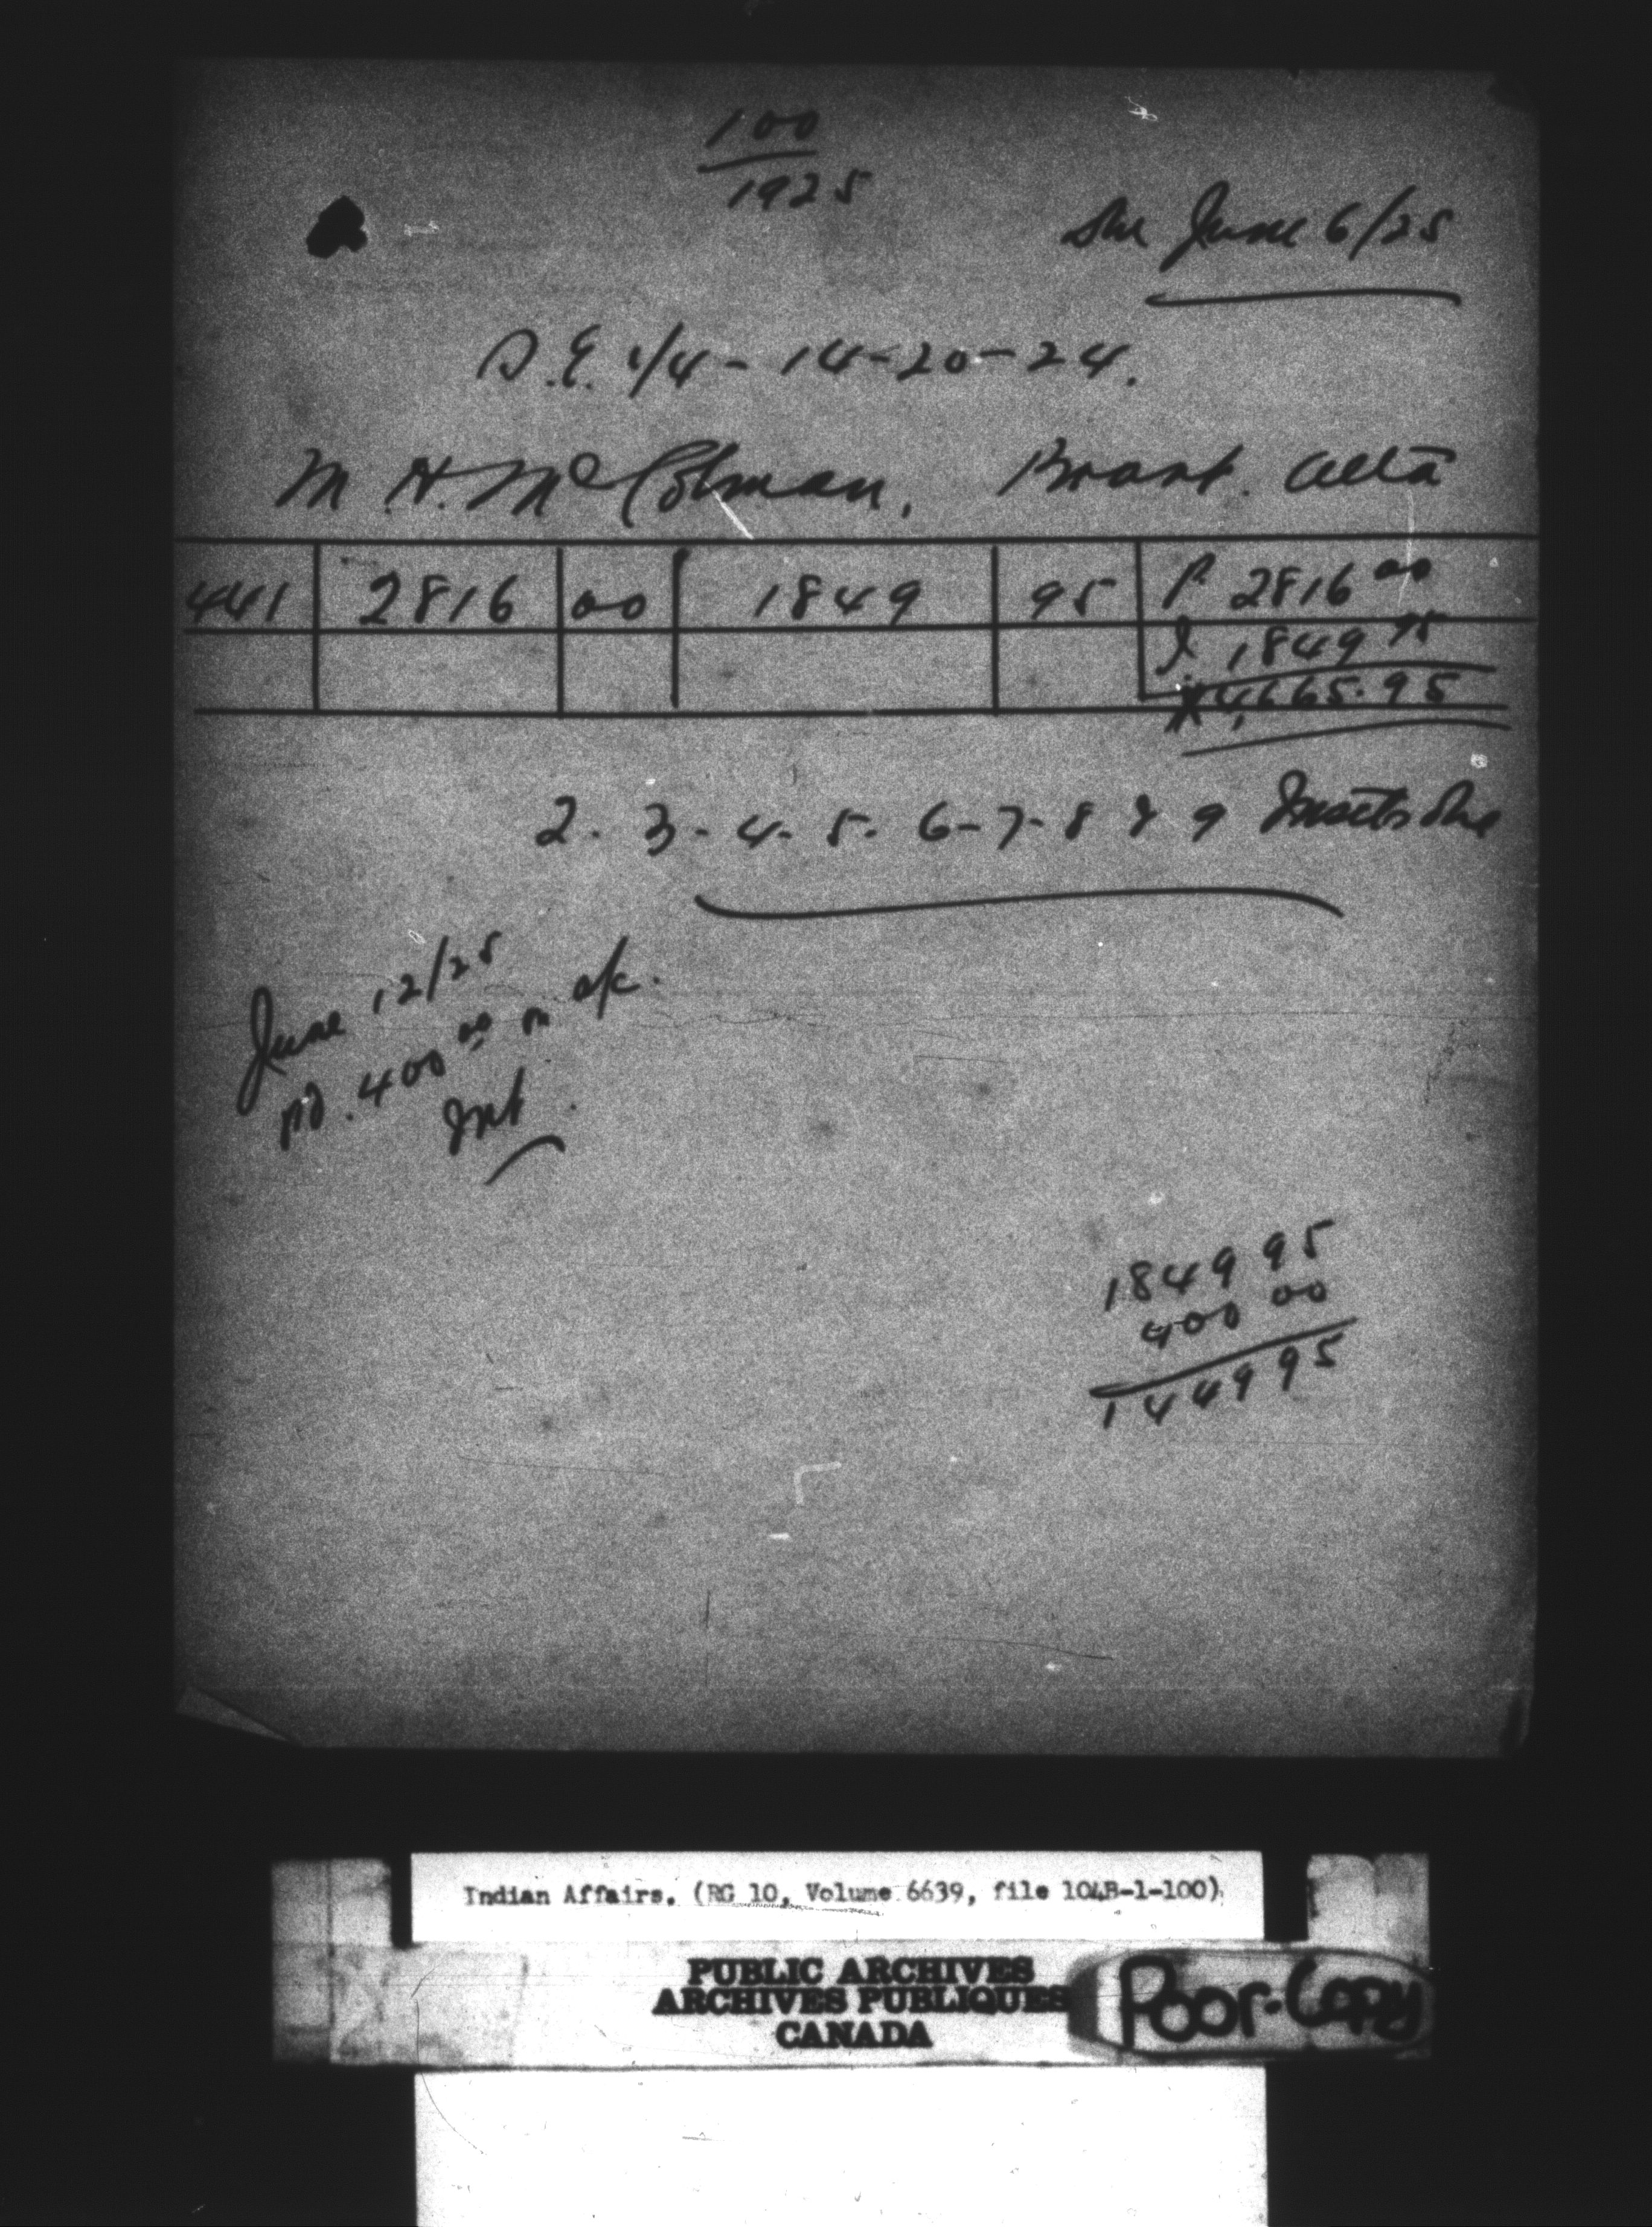 100
1925
Due June 6/25
S.E. 1/4 - 14-20-24.
M. H. McColman, Brant. Alta
441 2816 00 1849 95 P. 2816 00
I 1849 95
$4,665.95
2 - 3 - 4 - 5 - 6 - 7 - 8 & 9 Insts due
June 12/25
pd. 400 00 on a/c.
Int.
1849 95
400 00
1449 95
Indian Affairs. (RG 10, Volume 6639, file 104B-1-100)
PUBLIC ARCHIVES
ARCHIVES PUBLIQUES
CANADA
Poor-Copy